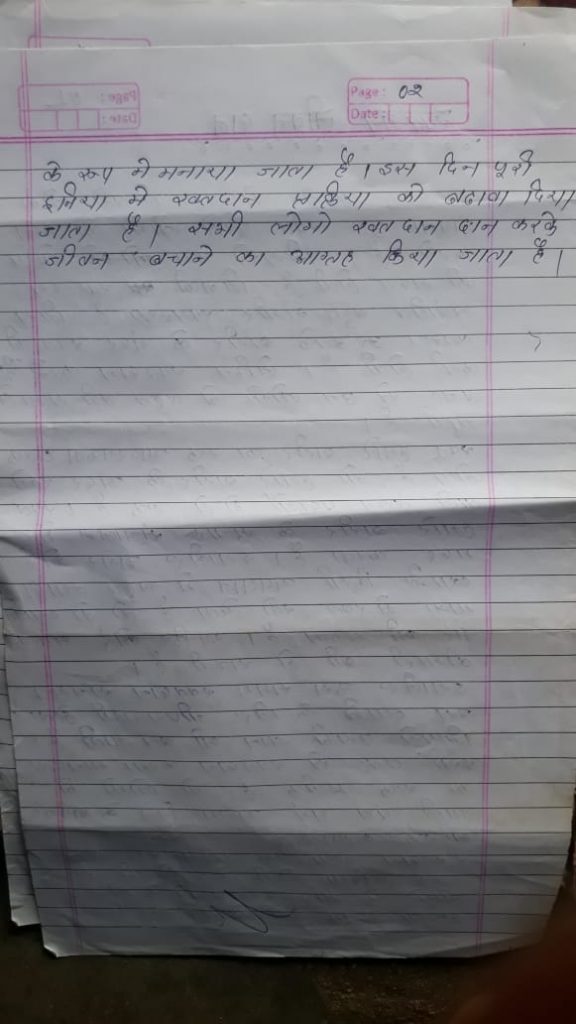 Page: 02
Date:
के रूप मे मनाया जाता है। इस दिन पूरी
दुनिया मे रक्तदान प्रक्रिया को बढावा दिया
जाता है। सभी लोगो रक्तदान दान करके
जीवन बचाने का आग्रह किया जाता है।